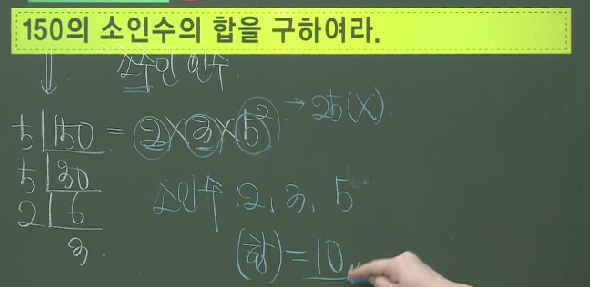 150의 소인수의 합을 구하여라.
소수인 인수.
5 150 = 2×3×5² → 25(X)
5 30
2 6
3.
소인수 2, 3, 5
(합)=10